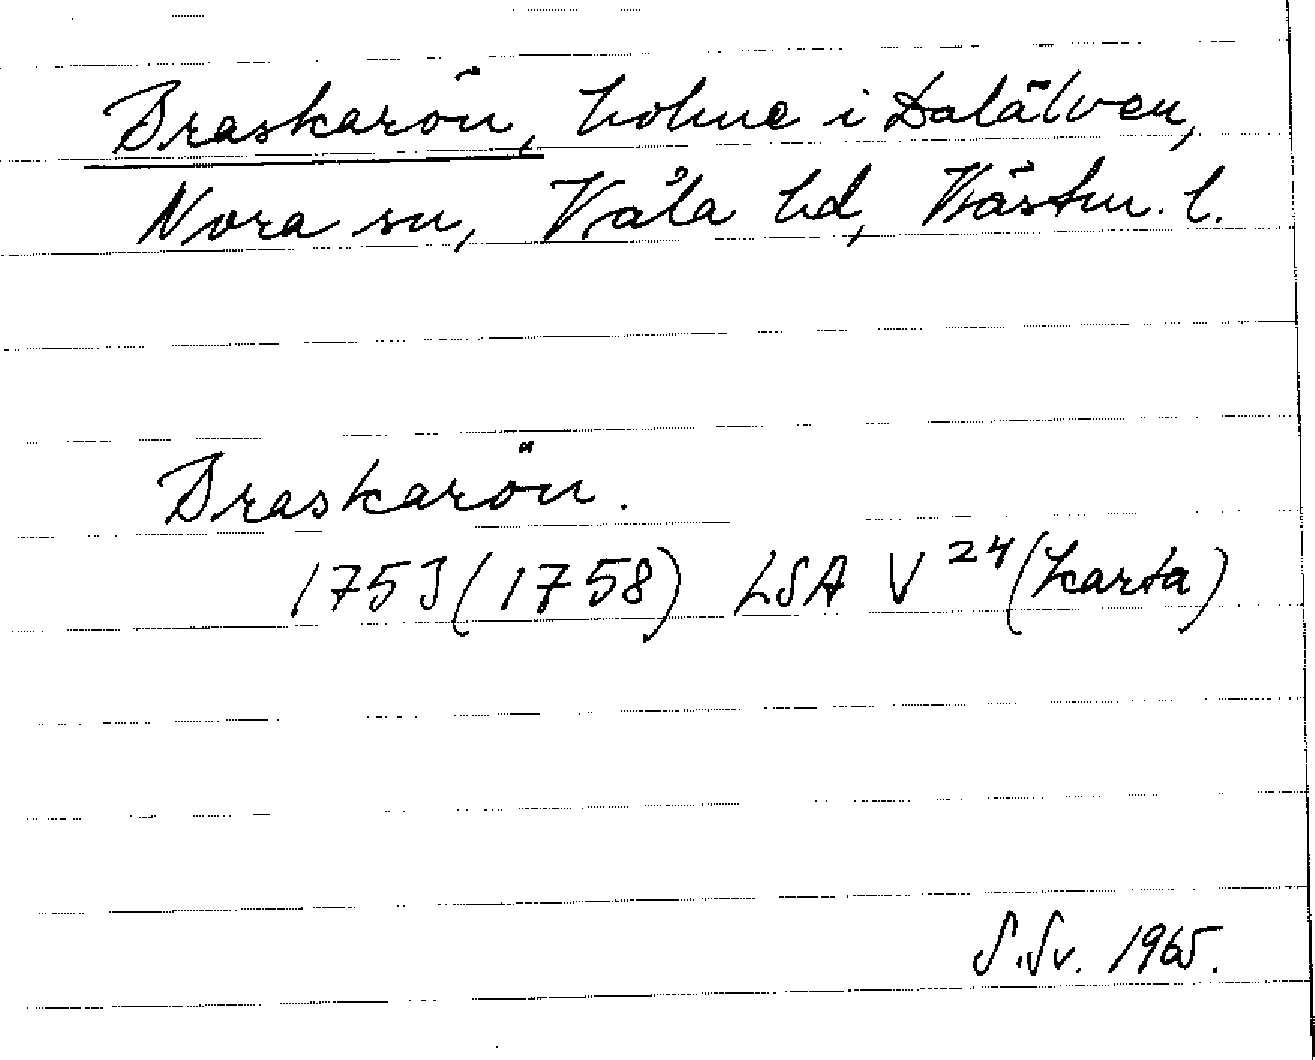 Braskarön, holme i Dalälven,
Nora sn, Våla hd, Västm. l.
Braskarön.
1753 (1758) LSA V 24 (karta)
S. Sv. 1965.